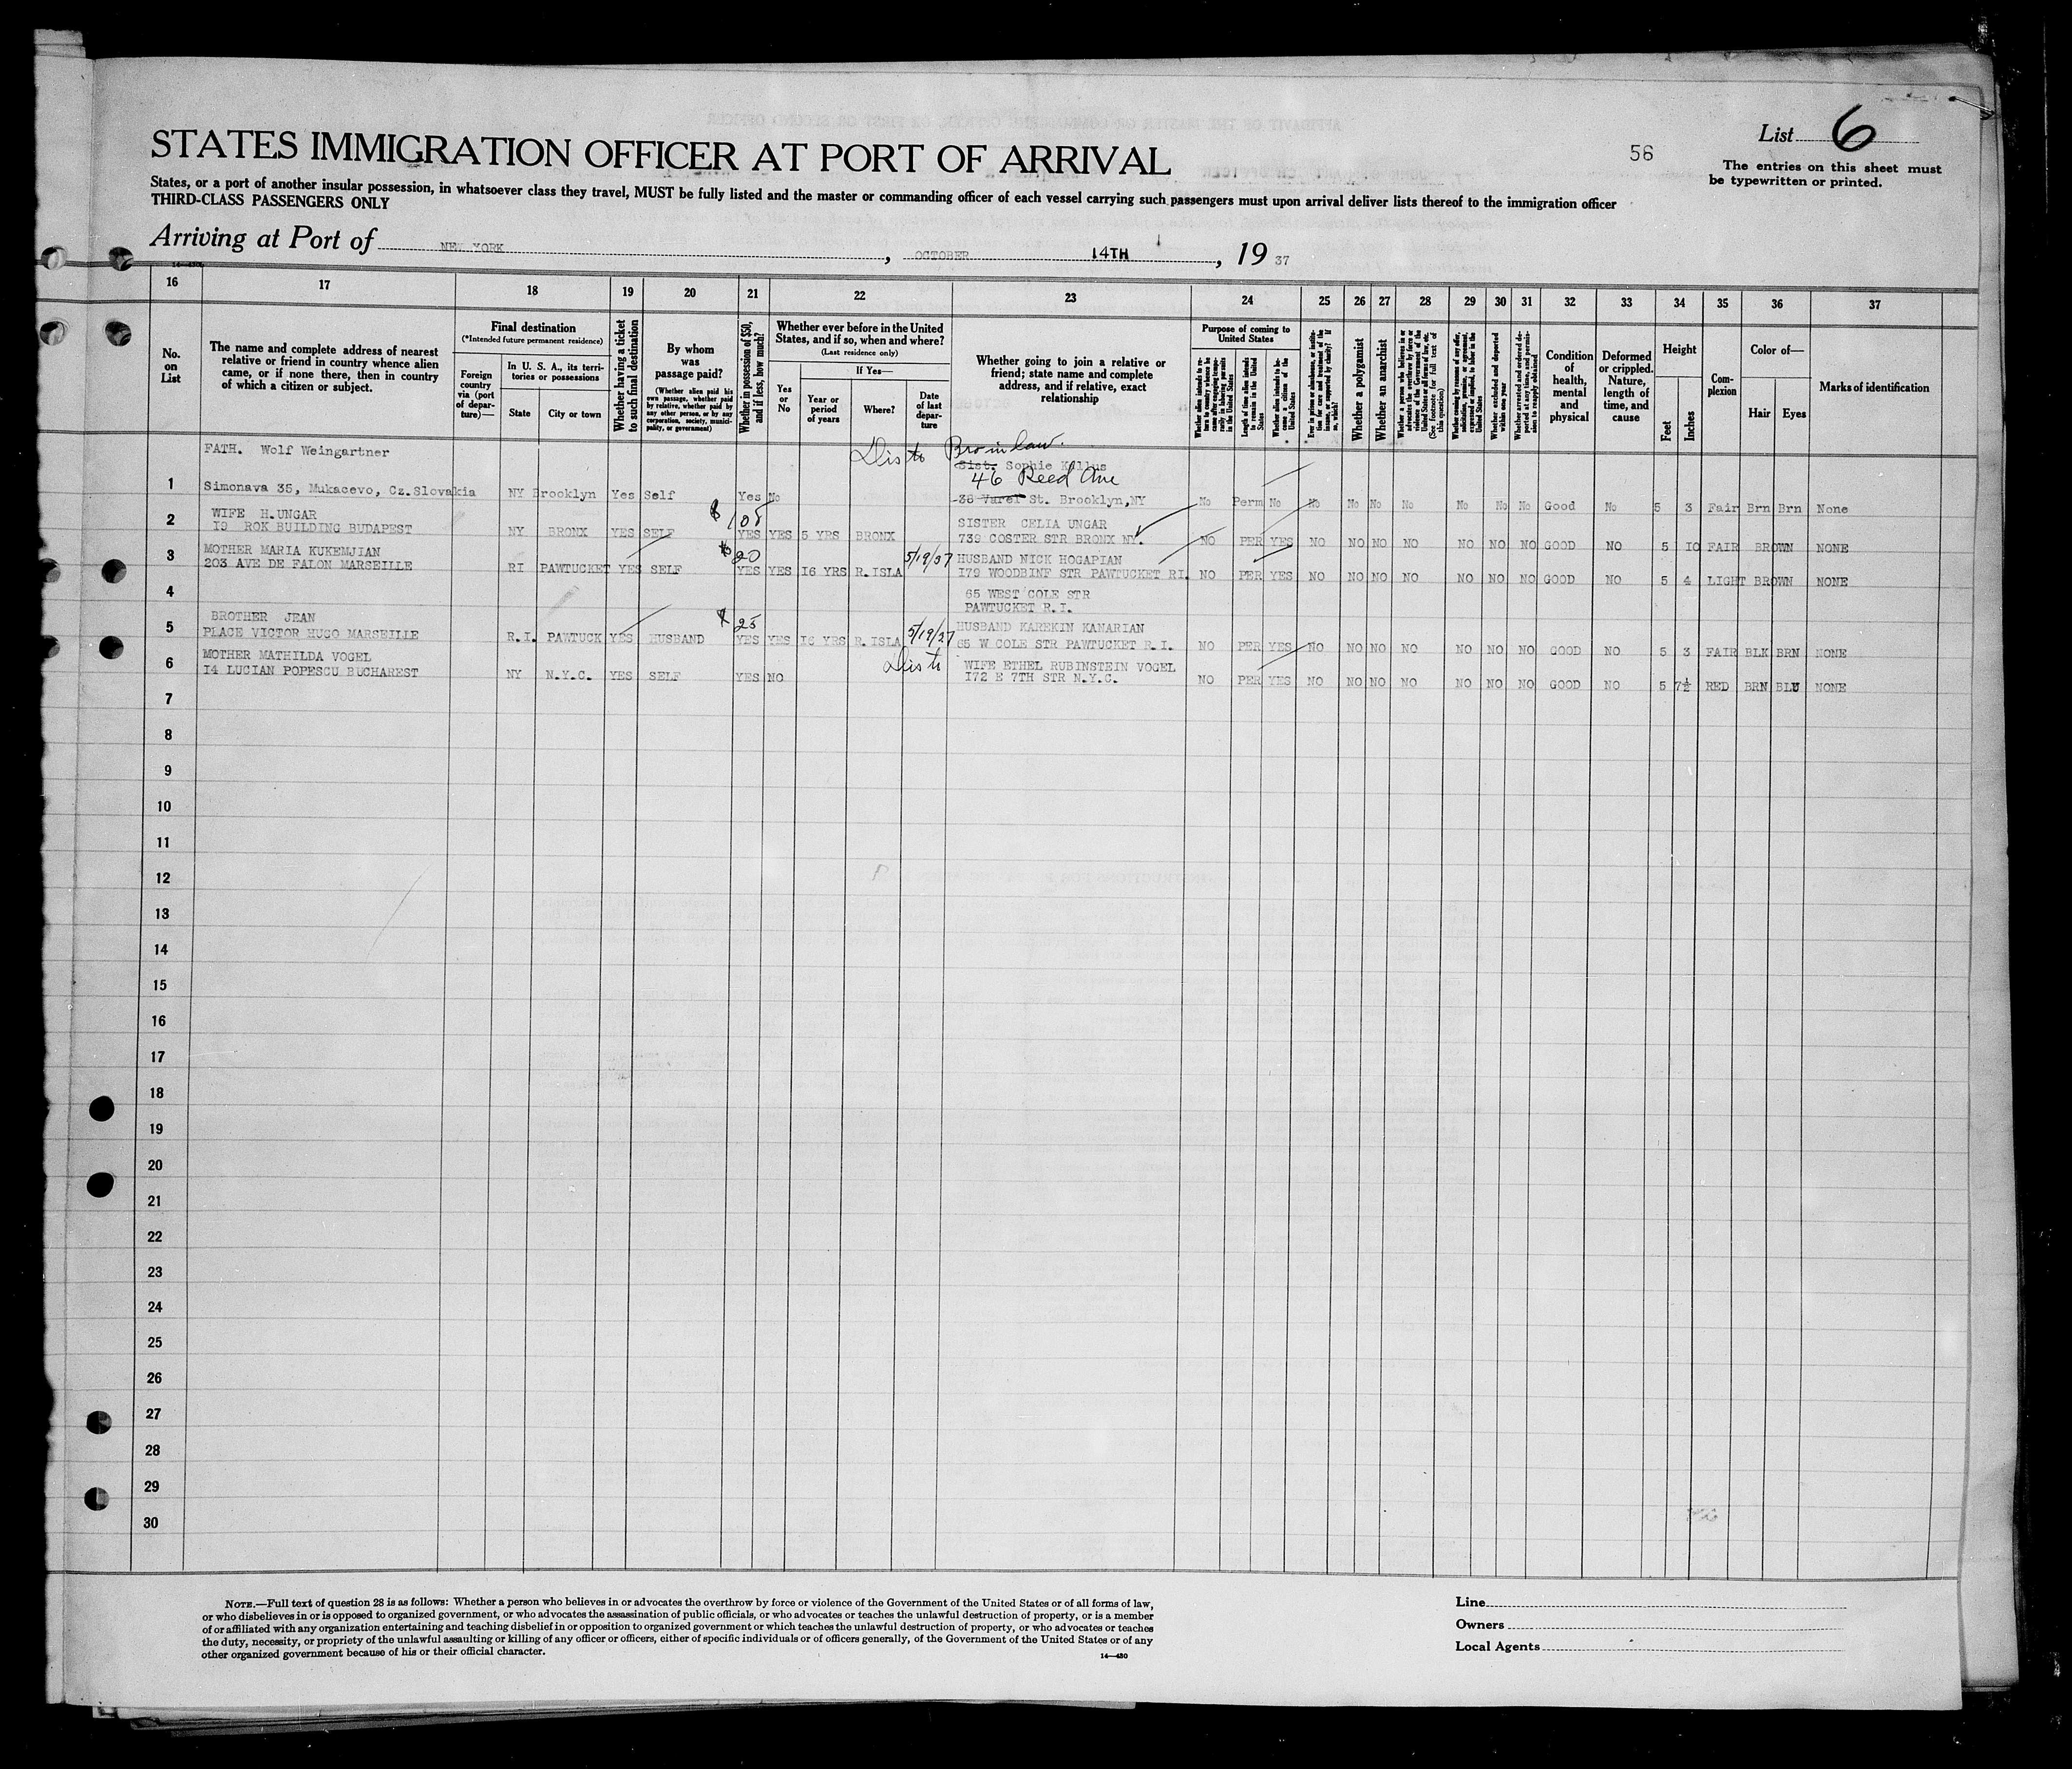 List 6
56
STATES IMMIGRATION OFFICER AT PORT OF ARRIVAL
The entries on this sheet must
be typewritten or printed.
States, or a port of another insular possession, in whatsoever class they travel, MUST be fully listed and the master or commanding officer of each vessel carrying such passengers must upon arrival deliver lists thereof to the immigration officer
THIRD-CLASS PASSENGERS ONLY
Arriving at Port of NEW YORK, OCTOBER 14TH, 19 37
16 17 18 19 20 21 22 23 24 25 26 27 28 29 30 31 32 33 34 35 36 37
No. on List
The name and complete address of nearest
relative or friend in country whence alien
came, or if none there, then in country
of which a citizen or subject.
Final destination
(*Intended future permanent residence)
Foreign
country
via (port
of depar-
ture)—
In U. S. A., its terri-
tories or possessions
State
City or town
Whether having a ticket
to such final destination
By whom
was
passage paid?
(Whether alien paid his
own passage, whether paid
by relative, whether paid by
any other person, or by any
corporation, society, munici-
pality, or government)
Whether in possession of $50,
and if less, how much?
Whether ever before in the United
States, and if so, when and where?
(Last residence only)
Yes
or
No
If Yes—
Year or
period
of years
Where?
Date
of last
depar-
ture
Whether going to join a relative or
friend; state name and complete
address, and if relative, exact
relationship
Purpose of coming to
United States
Whether a polygamist
Whether an anarchist
Condition
of
health,
mental
and
physical
Deformed
or crippled.
Nature,
length of
time, and
cause
Height
Feet
Inches
Com-
plexion
Color of—
Hair
Eyes
Marks of identification
FATH. Wolf Weingartner Dis to Bro in law.
Sist. Sophie Kallus
46 Reed Ave
1 Simonava 35, Mukacevo, Cz.Slovakia NY Brooklyn Yes Self Yes No 36 Varet St. Brooklyn,NY No Perm No No No No No No No No Good No 5 3 Fair Brn Brn None
2 WIFE H.UNGAR $ 108 SISTER CELIA UNGAR
I9 ROK BUILDING BUDAPEST NY BRONX YES SELF YES YES 5 YRS BRONX 739 COSTER STR BRONX NY. NO PER YES NO NO NO NO NO NO NO GOOD NO 5 IO FAIR BROWN NONE
3 MOTHER MARIA KUKEMJIAN $ 20 5/19/37 HUSBAND NICK HOGAPIAN
203 AVE DE FALON MARSEILLE RI PAWTUCKET YES SELF YES YES I6 YRS R.ISLA I79 WOODBINF STR PAWTUCKET RI. NO PER YES NO NO NO NO NO NO NO GOOD NO 5 4 LIGHT BROWN NONE
4 65 WEST COLE STR
PAWTUCKET R.I.
BROTHER JEAN $ 25 5/19/27 HUSBAND KAREKIN KANARIAN
5 PLACE VICTOR HUGO MARSEILLE R.I. PAWTUCK YES HUSBAND YES YES I6 YRS R.ISLA 65 W COLE STR PAWTUCKET R.I. NO PER YES NO NO NO NO NO NO NO GOOD NO 5 3 FAIR BLK BRN NONE
6 MOTHER MATHILDA VOGEL Dis to WIFE ETHEL RUBINSTEIN VOGEL
I4 LUCIAN POPESCU BUCHAREST NY N.Y.C. YES SELF YES NO I72 E 7TH STR N.Y.C. NO PER YES NO NO NO NO NO NO NO GOOD NO 5 7½ RED BRN BLU NONE
7
8
9
10
11
12
13
14
15
16
17
18
19
20
21
22
23
24
25
26
27
28
29
30
NOTE.—Full text of question 28 is as follows: Whether a person who believes in or advocates the overthrow by force or violence of the Government of the United States or of all forms of law,
or who disbelieves in or is opposed to organized government, or who advocates the assassination of public officials, or who advocates or teaches the unlawful destruction of property, or is a member
of or affiliated with any organization entertaining and teaching disbelief in or opposition to organized government or which teaches the unlawful destruction of property, or who advocates or teaches
the duty, necessity, or propriety of the unlawful assaulting or killing of any officer or officers, either of specific individuals or of officers generally, of the Government of the United States or of any
other organized government because of his or their official character.
14—430
Line
Owners
Local Agents